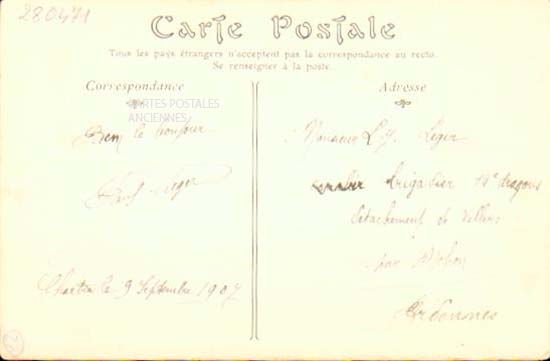 280471
Carte Postale
Tous les pays étrangers n'acceptent pas la correspondance au recto.
Se renseigner à la poste.
Correspondance
CARTES POSTALES
ANCIENNES
Bien le bonjour
Leger
le 9 Septembre 1907
Adresse
Monsieur L. Leger
brigadier 14e dragons
détachement de Villers
par Mohon
Ardennes